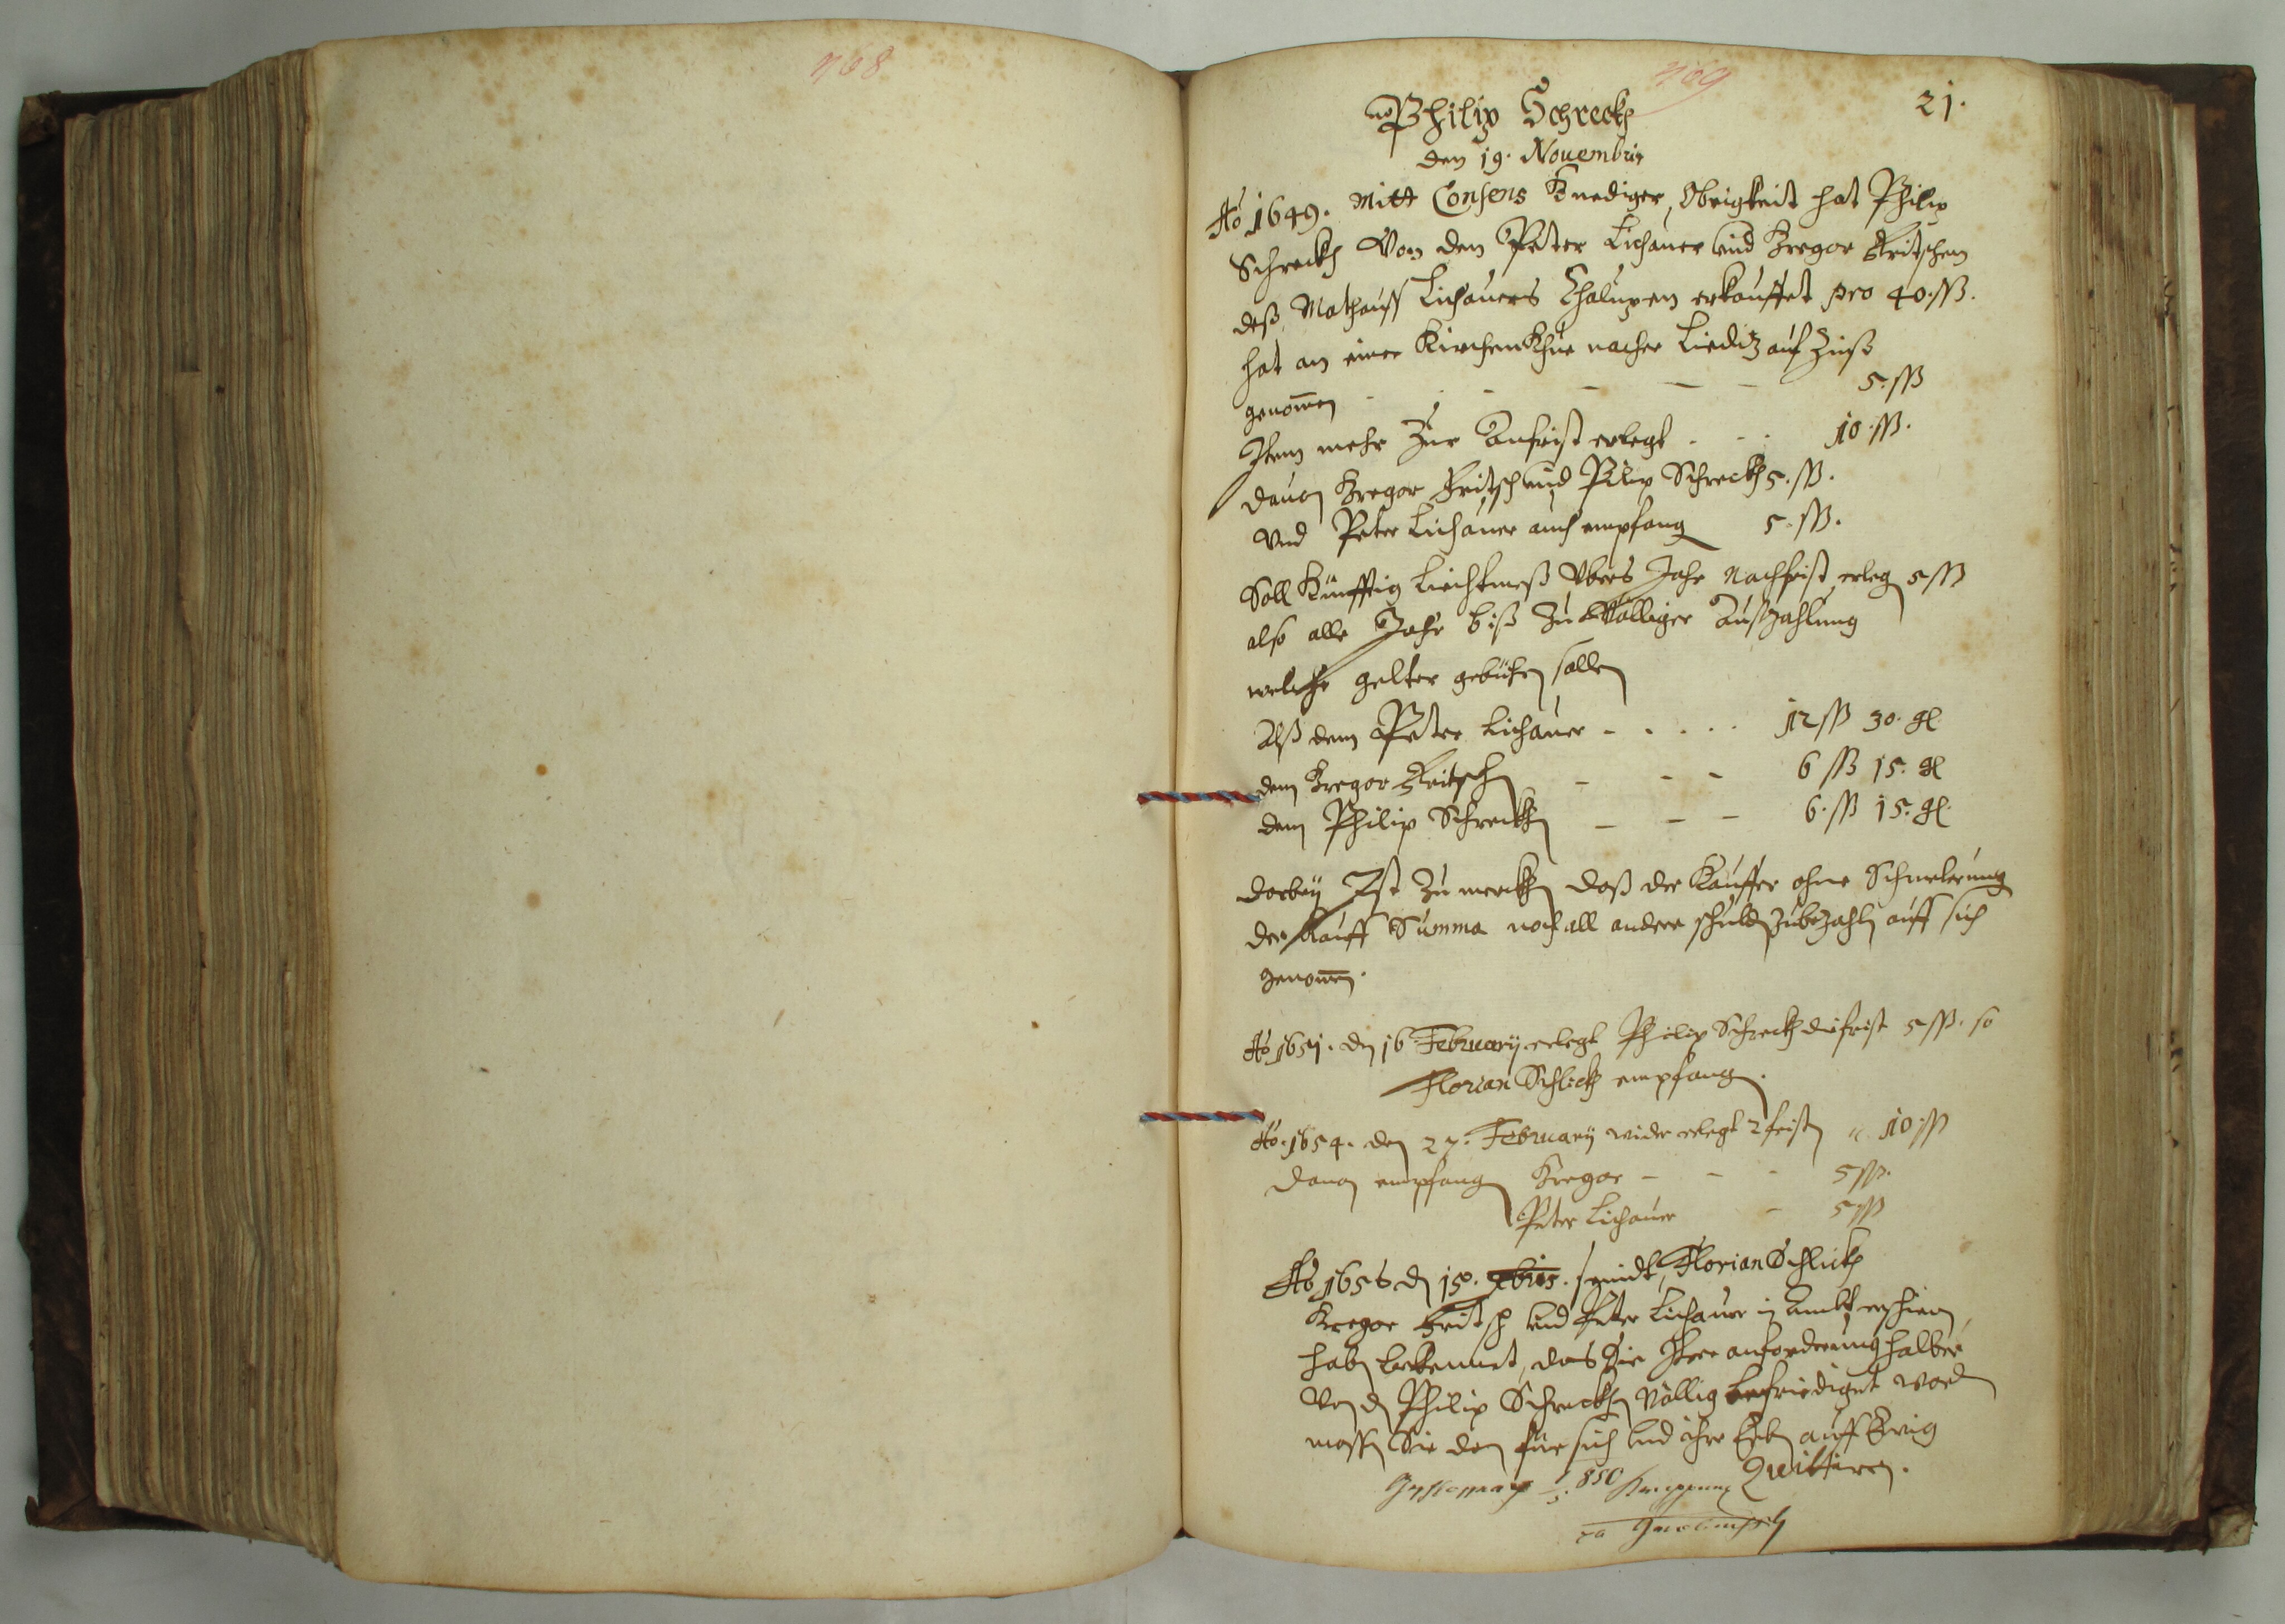 768
769
21.
Philip Schreckh
den 19. Novembris
Ao 1649. Mitt Consens Gnediger Obrigkeit hat Philip
Schreckh Von dem Peter Lichauer und Gregor Fritschen
deß Mathauß Lichauers Chalupen erkauffet pro 40 ſß.
hat an einer Kirchen Khue nacher auf Zinß
genomen - - - - 5. ſß
Item mehr Zur Anfrist erlegt - - - 10. ſß.
davon Gregor Fritsch und Pilip Schreckh 5. ſß.
Und Peter Lichauer auch empfang 5. ſß.
Soll Künfftig Liechtmeß Übers Jahr Nachfrist erleg 5 ſß
also alle Jahr biß Zu Völliger Außzahlung
welche gelter gebüren sollen
Alß dem Peter Lichauer - - - - - 12 ſß 30. gl
dem Gregor Fritsch - - - 6 ſß 15. gl
dem Philip Schreckh - - - 6. ſß 15. gl
darbey Ist Zu merckhen daß der Kauffer ohne Schmelerung
der Kauff Summa noch all andere schulden Zubezahlen auff sich
genomen.
Ao 1651. den 16 February erlegt Philip Schreckh die frist 5 ſß. so
Florian Schlickh empfang.
Ao. 1654. den 27. February wider erlegt 2 fristen 10. ſß
davon empfang Gregor - - - 5 ſß.
Peter Lichauer - 5 ſß
Ao 1656 den 15. Xbris. seindt Florian Schlickh
Gregor Fritsch und Peter Lichauer in Ambt erschienen
haben bekennet, das Sie Ihrer anforderung halber
Von den Philip Schreckhen Völlig befriediget worden
massen Sie den für sich und ihre Erben auff Ewig
Quittiren.
850